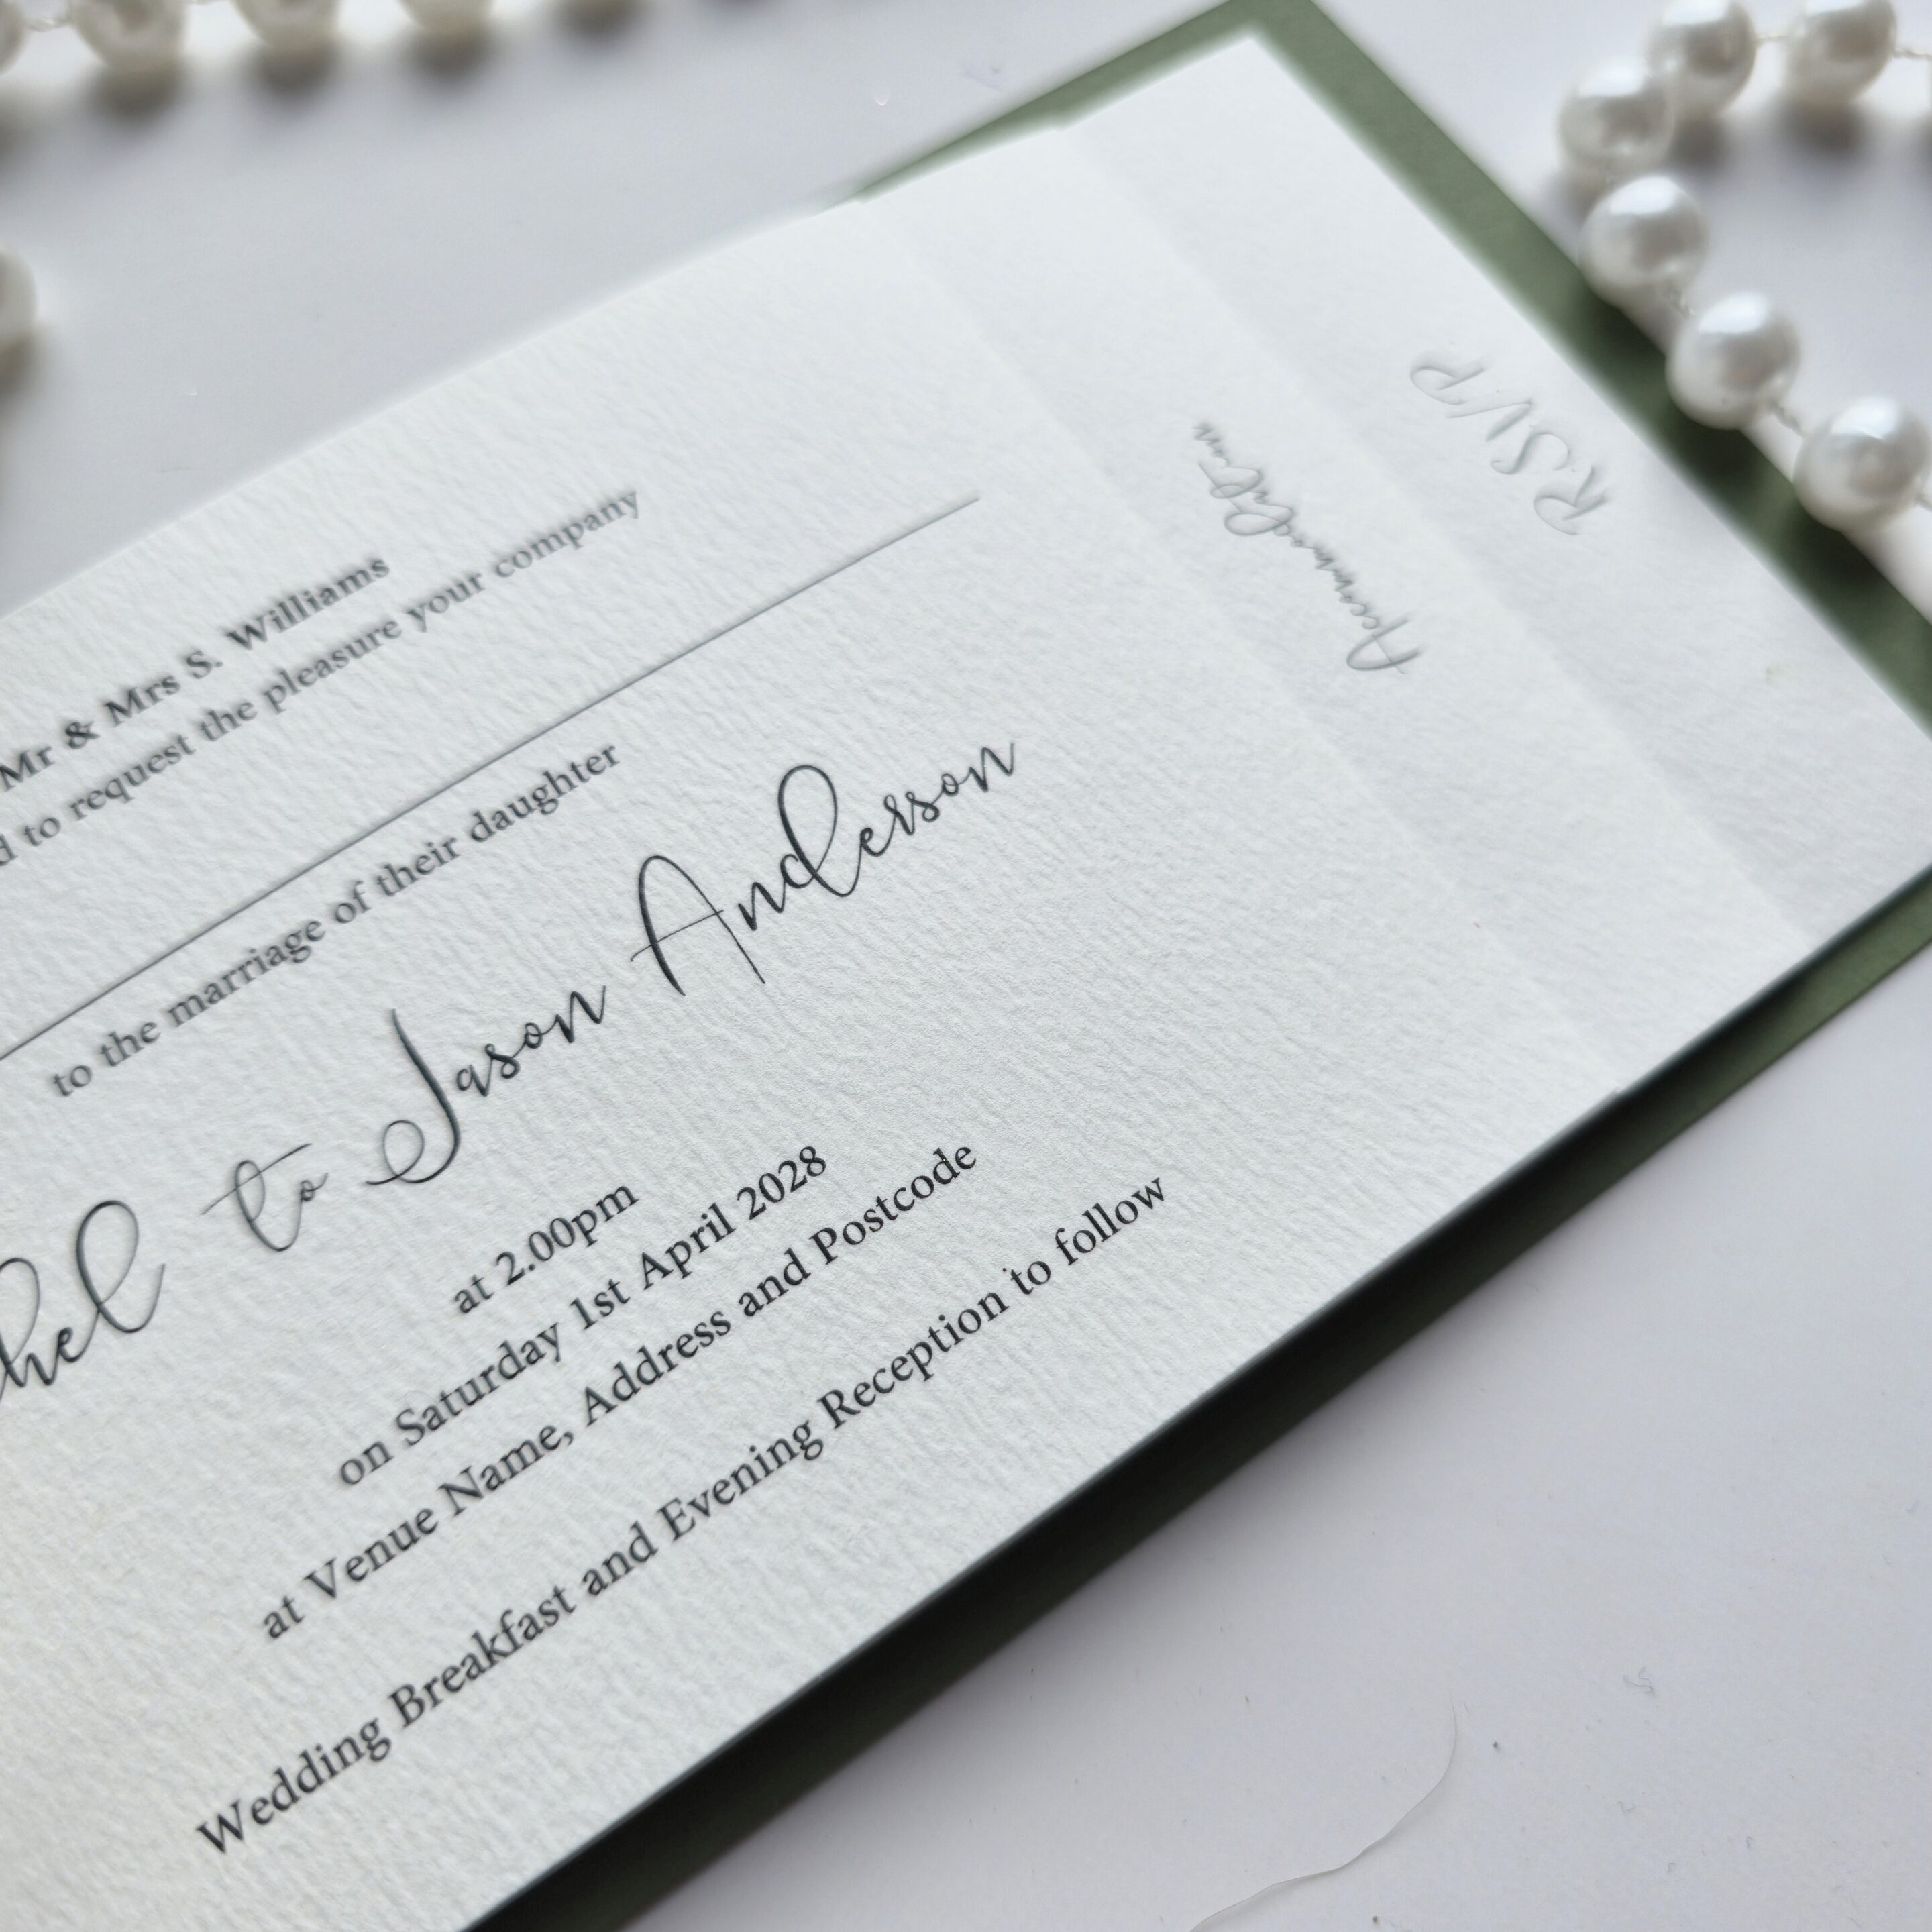 Mr & Mrs S. Williams
to request the pleasure your company
to the marriage of their daughter
to Jason Anderson
at 2.00pm
on Saturday 1st April 2028
at Venue Name, Address and Postcode
Wedding Breakfast and Evening Reception to follow
Accommodation
RSVP